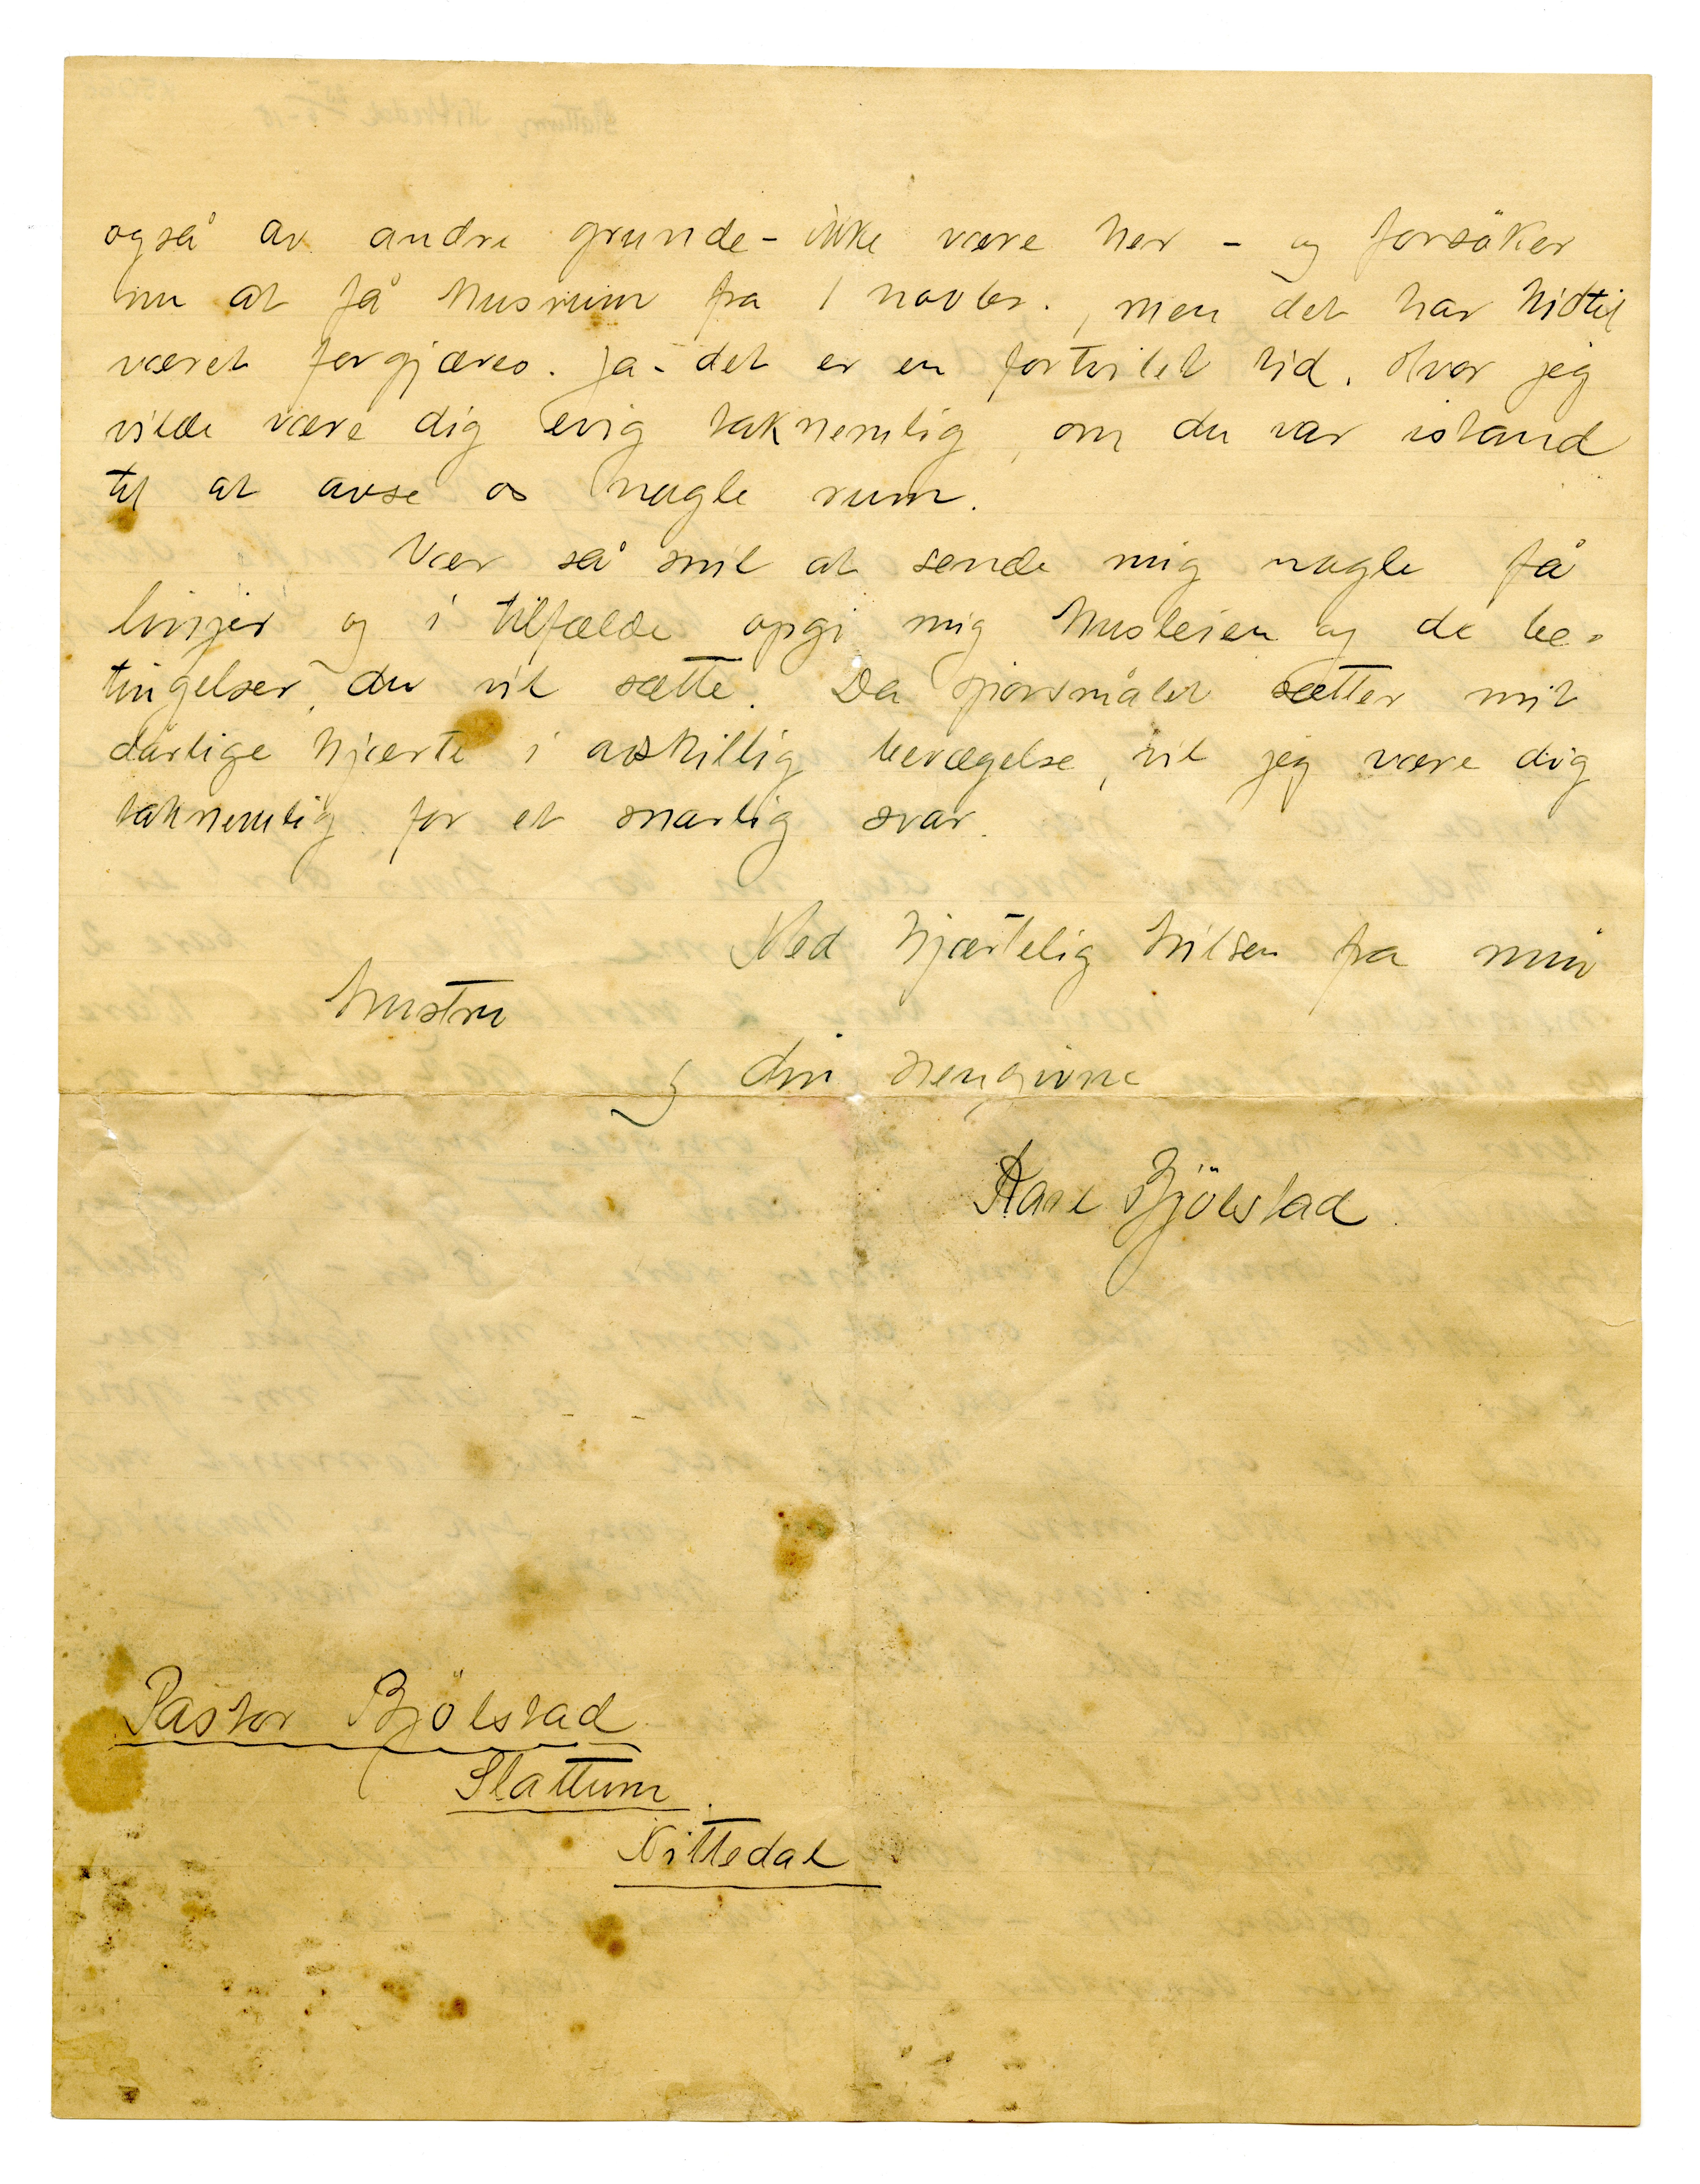 også av andre grunde - ikke være her - og forsöker
nu at få husrum fra 1 novbr., men det har hidtil
været forgjæves. Ja - det er en fortvilet tid. Hvor jeg
vilde være dig evig taknemlig, om du var istand
til at avse os nogle rum.
Vær så snil at sende mig nogle få
linjer og i tilfælde opgi mig husleien og de be-
tingelser, du vil sætte. Da spörsmålet sætter mit
dårlige hjærte i adskillig bevægelse, vil jeg være dig
taknemlig for et snarlig svar.
Med hjærtelig hilsen fra min
hustru
og din hengivne
Karl Bjölstad.
Pastor Bjölstad
Slattum.
Nittedal